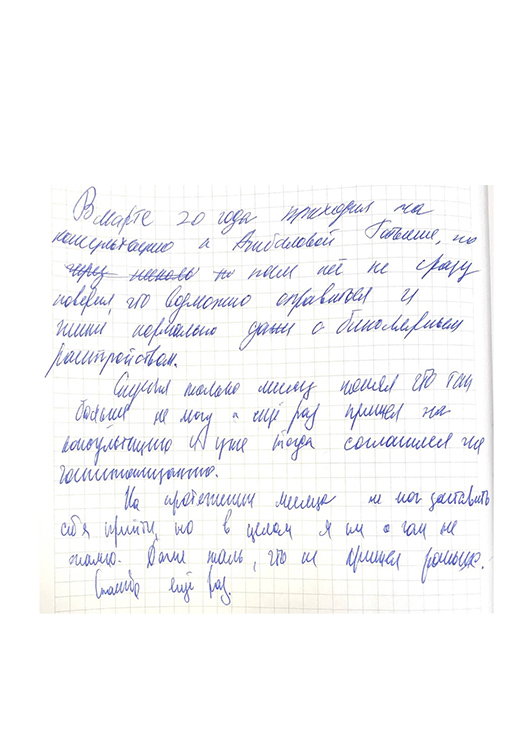 В марте 20 года приходил на
консультацию к Татьяне, но
через после неё не сразу
поверил, что возможно справиться и
жить нормально даже с биполярным
расстройством.
Спустя только месяц понял что так
больше не могу и ещё раз пришел на
консультацию и уже тогда согласился на
госпитализацию.
На протяжении месяца не мог заставить
себя прийти, но в целом я ни о чем не
жалею. Даже жаль, что не пришел раньше.
Спасибо ещё раз.